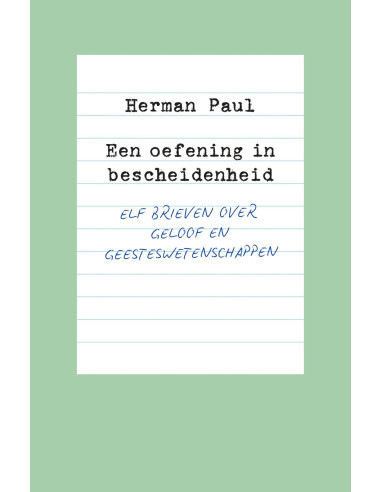 Herman Paul
Een oefening in
bescheidenheid
ELF BRIEVEN OVER
GELOOF EN
GEESTESWETENSCHAPPEN